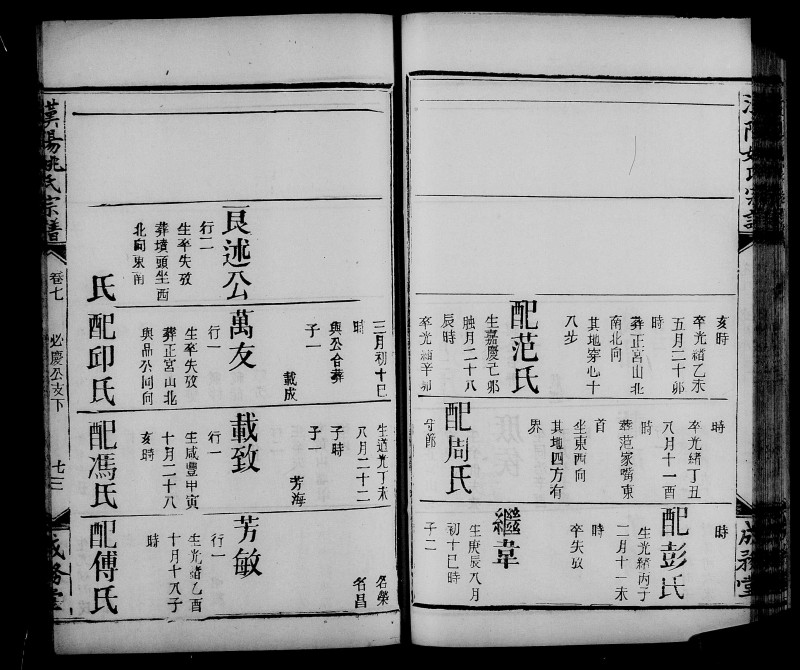 漢陽姚氏宗譜
亥時
卒光緒乙未
五月二十卯
時
葬正宮山北
南北向
其地穿心十
八步
配范氏
生嘉慶己卯
腊月二十八
辰時
卒光緒辛卯
三月初十巳
時
與公合葬
子一
載成
時
卒光緒丁丑
八月十一酉
時
葬范家嘴東
首
坐東西向
其地四方有
界
配周氏
守節
生道光丁未
八月二十二
子時
子一
芳海
時
配彭氏
生光緒丙子
二月十一未
時
卒失攷
繼韋
生庚辰八月
初十巳時
子二
名榮
名昌
成務堂
艮述公
行二
生卒失攷
葬墳頭坐西
北向東南
氏
萬友
行一
生卒失攷
葬正宮山北
與品公同向
配邱氏
載致
行一
生咸豐甲寅
十月二十八
亥時
配馮氏
芳敏
行一
生光緒乙酉
十月十八子
時
配傅氏
漢陽姚氏宗譜
卷七
必慶公支下
七三
成務堂